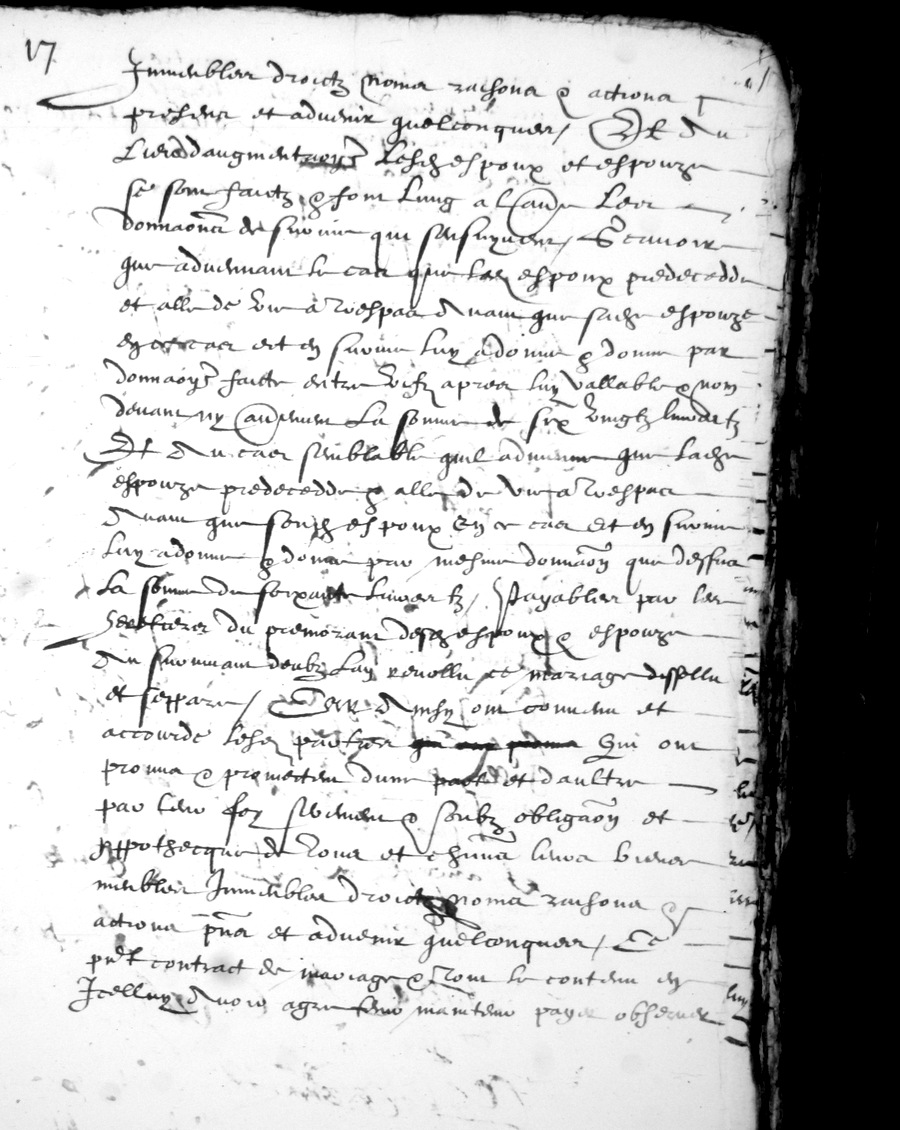 17
Immeubles droictz noms raisons & actions
presens et advenir quelconques / Et du
lesdz espoux et espouze
se sont faictz & font lung a laultre les
donnaons de survie qui sensuyvent / Scavoir
que advenant le cas que led espoux predecedde
et alle de vie a trespas avant que sadz espouze
en ce cas et en survie luy a donne & donne par
donnaon faicte entre vifz apres luy vallable & non
devant ny aultrement la somme de six vingtz livres tz
Et au cas semblable quil advienne que ladz
espouze predecedde & alle de vie a trespas
avant que sondz espoux en ce cas et en survie
luy a donne & donne par mesme donnaon que dessus
la somme de soixante livres tz / Payables par les
heretiers du premorant desdz espoux & espouze
au survivant deulx lan revollu ce mariage dissollu
et seppare / Car ainsy ont convenu et
accourde lesdz parties Qui ont
promis & promectent dune part et daultre
par leur foy serment & soubz obligaon et
yppothecque de tous et chuns leurs biens
meubles Immeubles droictz noms raisons &
actions pns et advenir quelconques / Ce
pnt contract de mariage & tout le contenu en
Icelluy avoir agre tenir maintenir payer observer